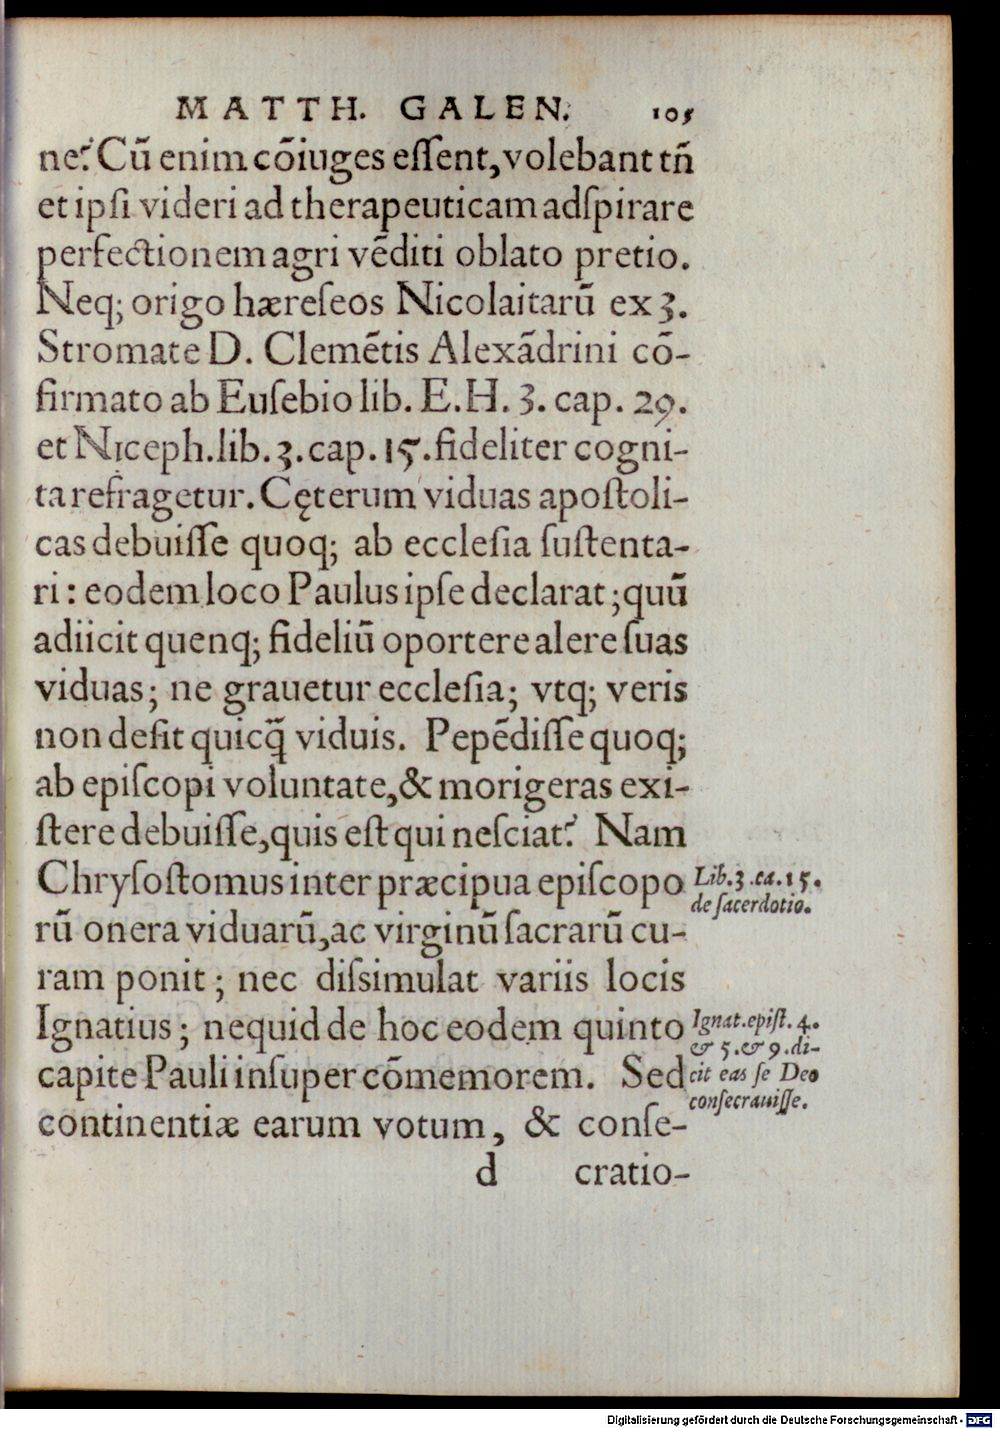 MATTH. GALEN. 105
ne? Cũ enim cõiuges eſſent, volebant tñ
et ipſi videri ad therapeuticam adſpirare
perfectionem agri vẽditi oblato pretio.
Neq; origo hæreſeos Nicolaitarũ ex 3.
Stromate D. Clemẽtis Alexãdrini cõ-
firmato ab Euſebio lib. E.H. 3. cap. 29.
et Niceph. lib. 3. cap. 15. fideliter cogni-
ta refragetur. Cęterum viduas apoſtoli-
cas debuiſſe quoq; ab eccleſia ſuſtenta-
ri: eodem loco Paulus ipſe declarat; quũ
adiicit quenq; fideliũ oportere alere ſuas
viduas; ne grauetur eccleſia; vtq; veris
non deſit quicq̃ viduis. Pepẽdiſſe quoq;
ab epiſcopi voluntate, & morigeras exi-
ſtere debuiſſe, quis eſt qui neſciat? Nam
Chryſoſtomus inter præcipua epiſcopo
rũ onera viduarũ, ac virginũ ſacrarũ cu-
ram ponit; nec diſsimulat variis locis
Ignatius; nequid de hoc eodem quinto
capite Pauli inſuper cõmemorem. Sed
continentiæ earum votum, & conſe-
d cratio-
Lib. 3. ca. 15.
de ſacerdotio.
Ignat. epiſt. 4.
& 5. & 9. di-
cit eas ſe Deo
conſecrauiſſe.
Digitalisierung gefördert durch die Deutsche Forschungsgemeinschaft - DFG